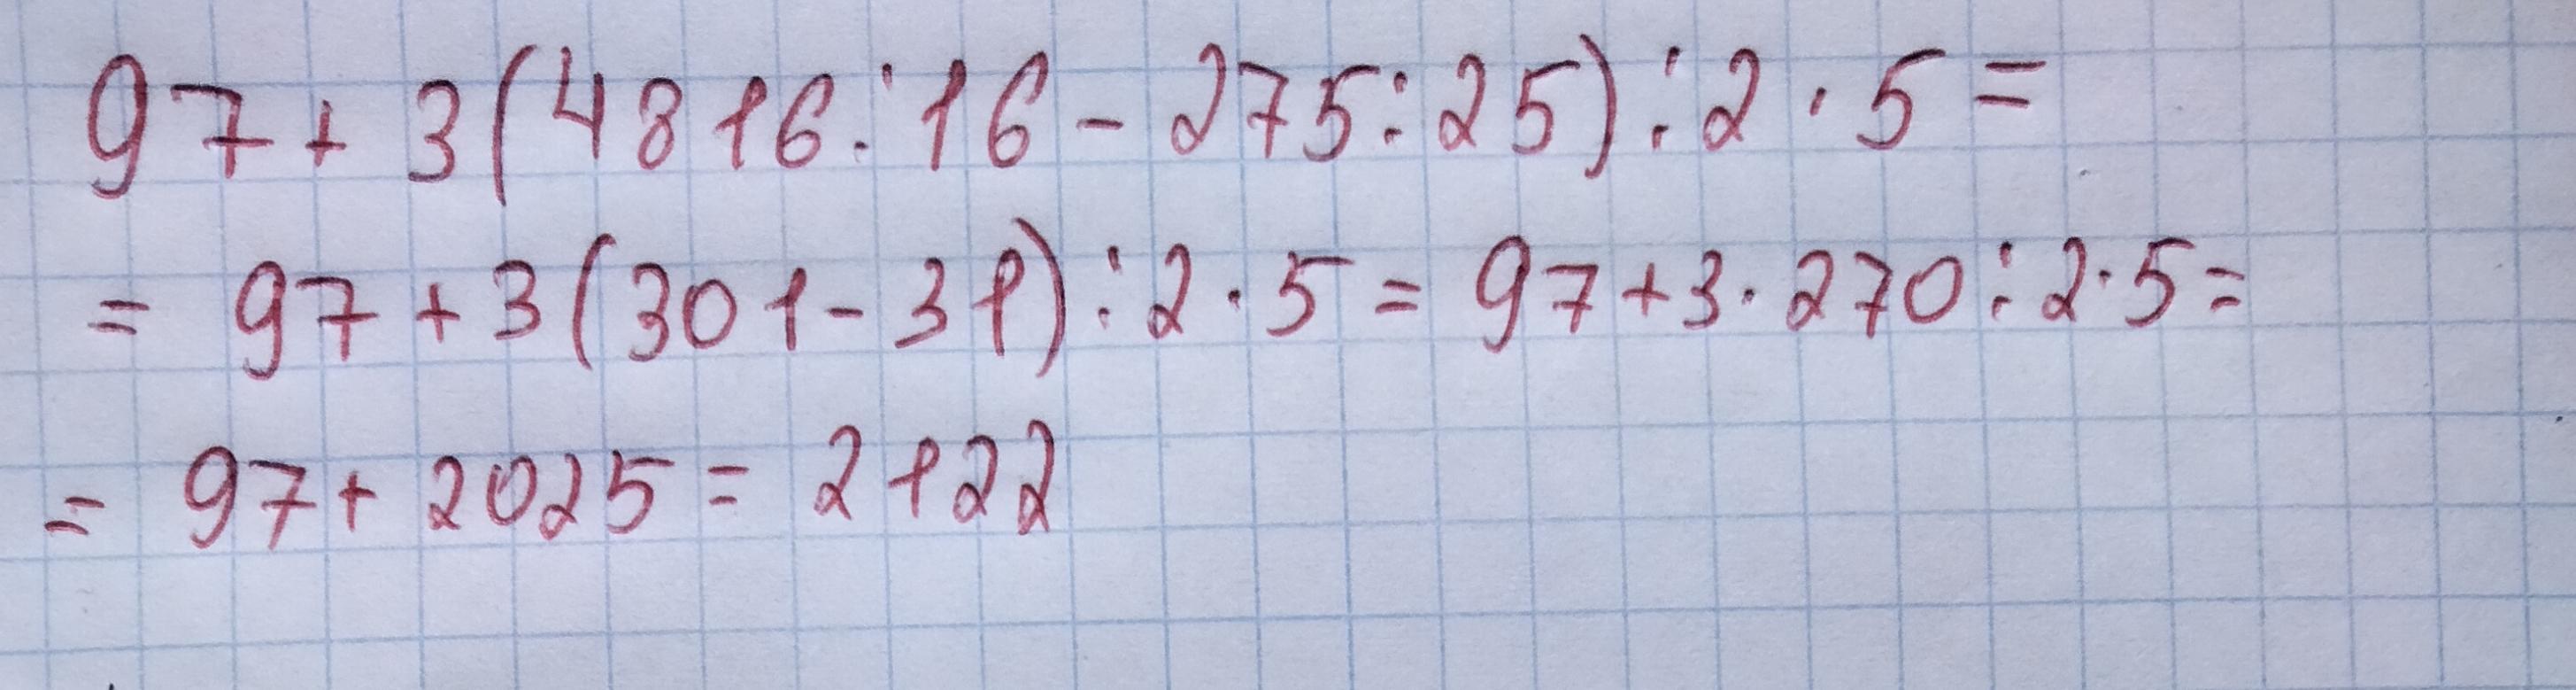 97 + 3(4816 : 16 - 275 : 25) : 2 · 5 =
= 97 + 3(301 - 31) : 2 · 5 = 97 + 3 · 270 : 2 · 5 =
= 97 + 2025 = 2122